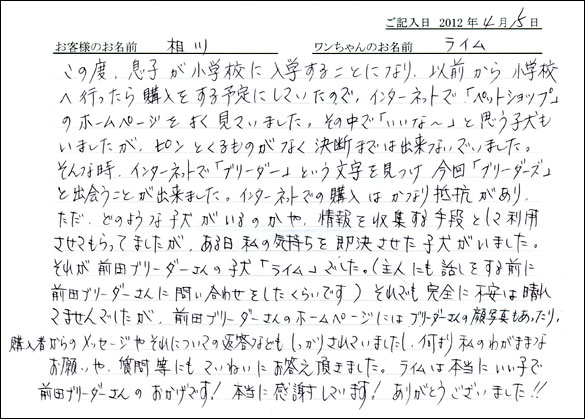 ご記入日 2012年4月15日
お客様のお名前 相川 ワンちゃんのお名前 ライム
この度、息子が小学校に入学することになり、以前から小学校
へ行ったら購入をする予定にしていたので、インターネットで「ペットショップ」
のホームページをよく見ていました。その中で「いいな〜」と思う子犬も
いましたが、ピンとくるものがなく決断までは出来ないでいました。
そんな時、インターネットで「ブリーダー」という文字を見つけ今回「ブリーダーズ」
と出会うことが出来ました。インターネットでの購入はかなり抵抗があり、
ただ、どのような子犬がいるのかや、情報を収集する手段として利用
させてもらってましたが、ある日私の気持ちを即決させた子犬がいました。
それが前田ブリーダーさんの子犬「ライム」でした。(主人にも話しをする前に
前田ブリーダーさんに問い合わせをしたくらいです)それでも完全に不安は晴れ
てませんでしたが、前田ブリーダーさんのホームページにはブリーダーさんの顔写真もあったり、
購入者からのメッセージやそれについての返答などもしっかりされていましたし、何より私のわがままな
お願いや、質問等にもていねいにお答え頂きました。ライムは本当にいい子で
前田ブリーダーさんのおかげです!本当に感謝しています!ありがとうございました!!